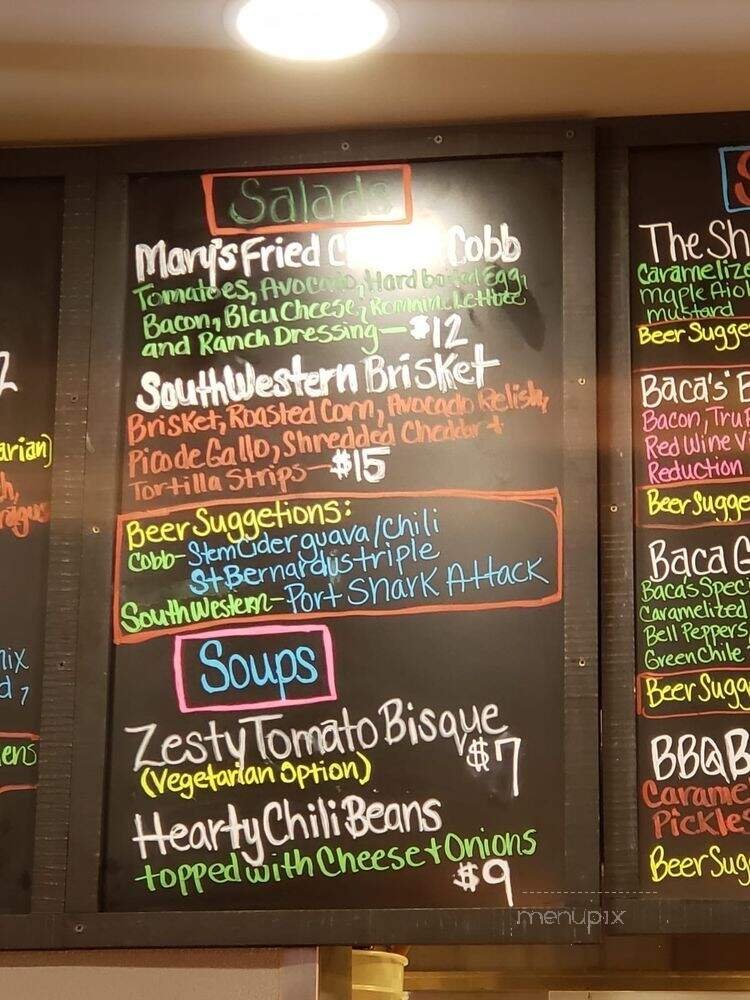 Salads
Mary's Fried C Cobb
Tomatoes, Avocado, Hard boiled Egg,
Bacon, Bleu Cheese, Romaine Lettuce
and Ranch Dressing—$12
SouthWestern Brisket
Brisket, Roasted Corn, Avocado Relish,
Pico de Gallo, Shredded Cheddar +
Tortilla Strips—$15
Beer Suggetions:
Cobb- Stem Cider guava/chili
St Bernardus triple
SouthWestern- Port Shark Attack
Soups
Zesty Tomato Bisque
(Vegetarian Option) $7
Hearty Chili Beans
topped with Cheese + Onions
$9
arian)
ix
d,
ens
The Sh
Carameliz
maple Aio
mustard
Beer Sugge
Baca's B
Bacon, Tru
Red Wine V
Reduction
Beer Sugge
Baca G
Baca's Spec
Caramelized
Bell Peppers
Green Chile
Beer Sugg
BBQ B
Carame
Pickles
Beer Sug
menupix